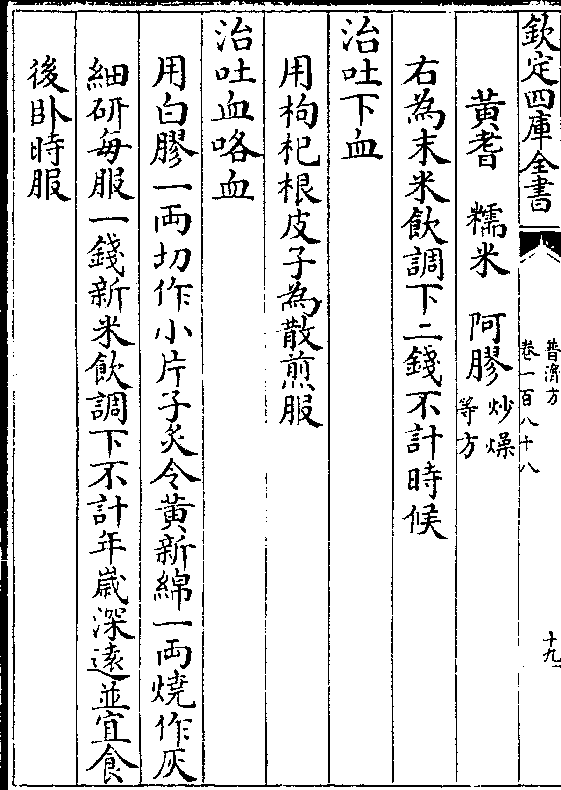 欽定四庫全書
普濟方
卷一百八十八
十九
黃耆 糯米 阿膠炒燥等方
右為末米飲調下二錢不計時候
治吐下血
用枸杞根皮子為散煎服
治吐血咯血
用白膠一両切作小片子炙令黄新綿一両燒作灰
細研每服一錢新米飲調下不計年嵗深遠並宜食
後卧時服